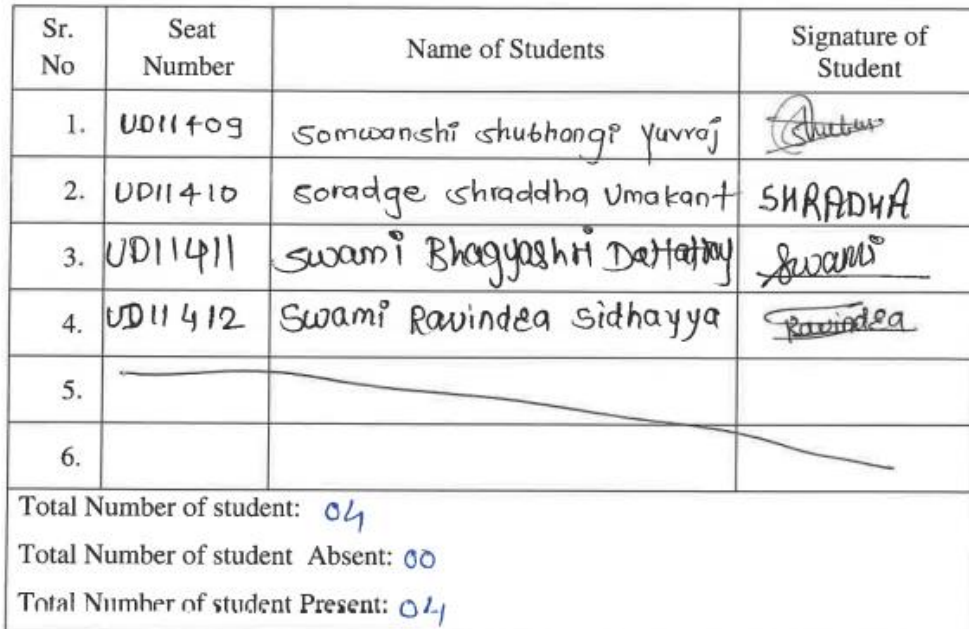 Sr. No Seat Number Name of Students Signature of Student
1. UD11409 Somwanshi Shubhangi Yuvraj
2. UD11410 Soradge Shraddha Umakant SHRADHA
3. UD11411 Swami Bhagyashri Dattatray Swami
4. UD11412 Swami Ravindra Sidhayya Ravindra
5.
6.
Total Number of student: 04
Total Number of student Absent: 00
Total Number of student Present: 04